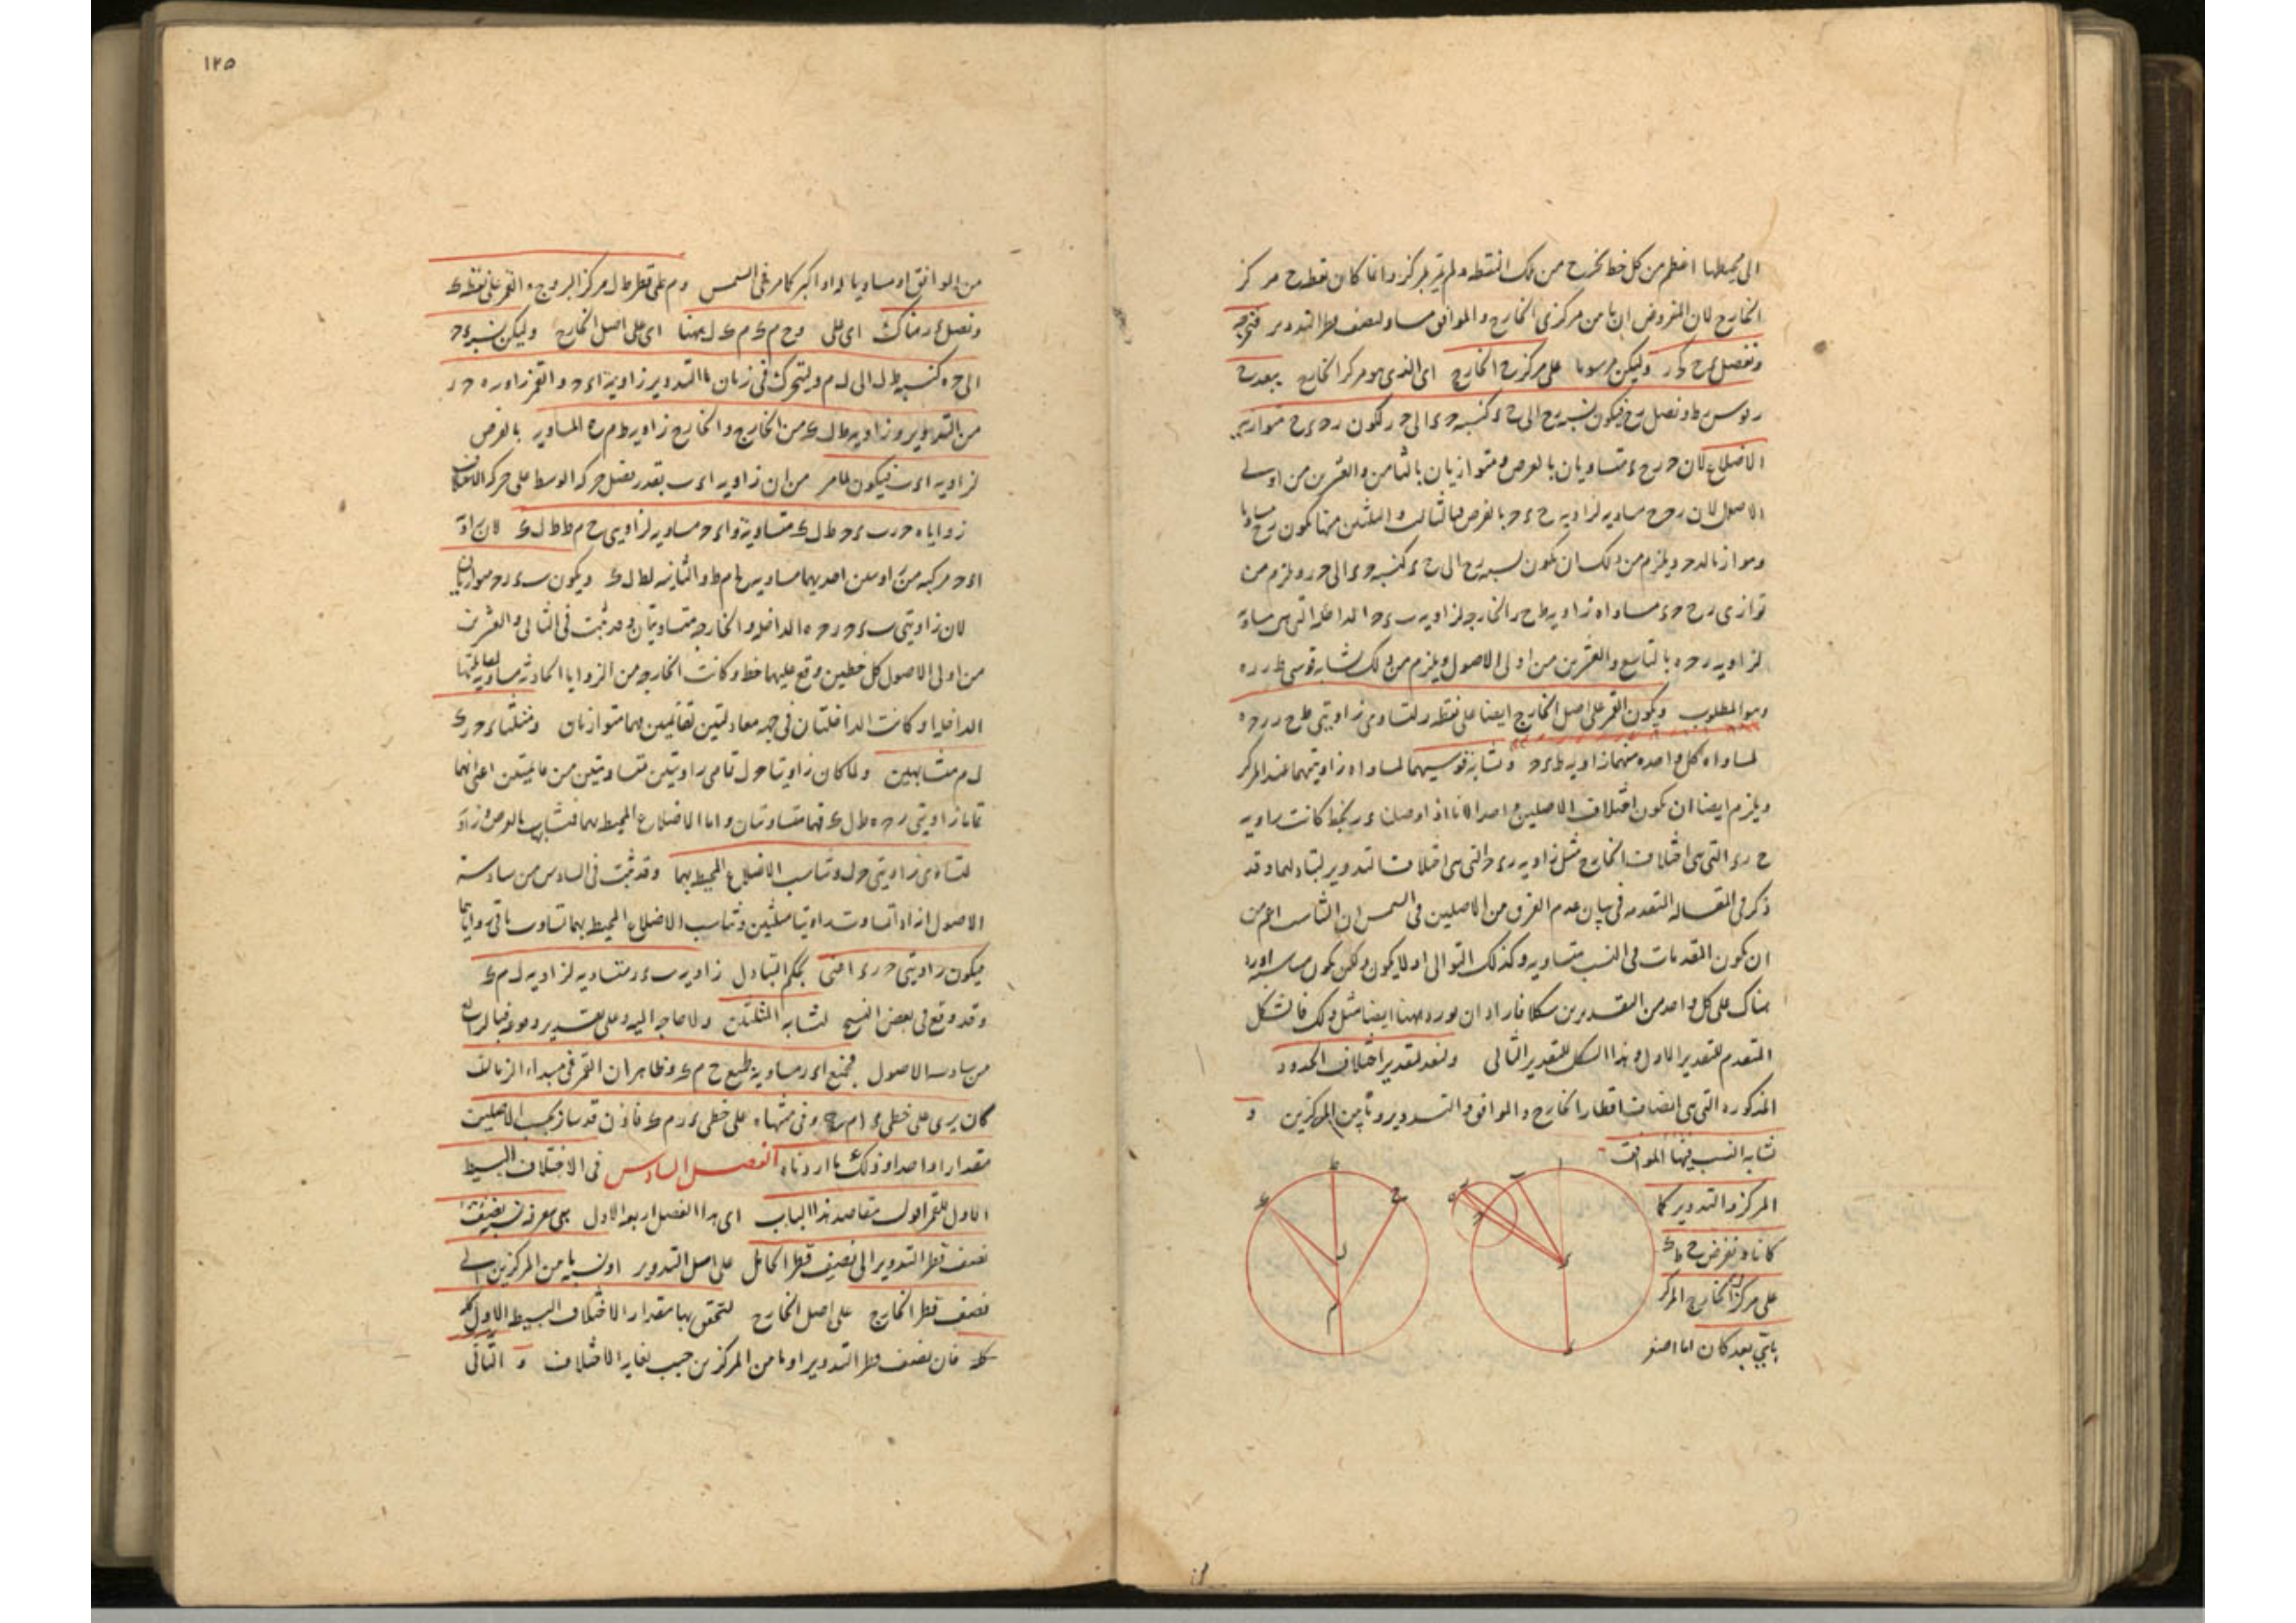 الى محيطها اعظم من كل خط يخرج من تلك النقطة ولم يمر بالمركز وانما كان نقطة ح مركز
الخارج لان المفروض ان ما بين مركزى الخارج والموافق مساو لنصف قطر التدوير
ونصل ء ح ر وليكن مرسوما على مركز ح الخارج اى الذى هو مركز الخارج ببعد ح
ر قوس ر ط ونصل ر ح فيكون نسبة ر ح الى ح ء كنسبة ح ء الى ح ر لكون ر ح ء ح متوازى
الاضلاع لان ح ر ح ء متساويان بالفرض ومتوازيان بالثامن والعشرين من اولى
الاصول لان ر ح ح مساوية لزاوية ح ء ح بالفرض فبالثالث والثلثين منها يكون ر ح مساويا
وموازيا لد ح ويلزم من ذلك ان يكون نسبة ر ح الى ح ء كنسبة ح ء الى ح ر ويلزم من
توازى ر ح ح ء مساواة زاوية ط ح ر الخارجة لزاوية ب ء ح الداخلة التى هى مساوية
لزاوية ر ح ه بالتاسع والعشرين من اولى الاصول ويلزم من ذلك تشابه قوسى ط ر ر ه
وهو المطلوب ويكون القمر على اصل الخارج ايضا على نقطة ر لتساوى زاويتى ط ح ر ر ح ه
لمساواة كل واحدة منهما زاوية ط ء ح وتشابه قوسيهما لمساواة زاويتيهما عند المركز
ويلزم ايضا ان يكون اختلاف الاصلين واحدا لانا اذا وصلنا ء ر بخط كانت زاوية
ح ر ء التى هى اختلاف الخارج مثل زاوية ر ء ح التى هى اختلاف التدوير لتبادلهما وقد
ذكر فى المقالة المتقدمة فى بيان عدم الفرق بين الاصلين فى الشمس ان التناسب اعم من
ان يكون المقدمات فى النسب متساوية وكذلك التوالى او لا يكون ولكن يكون متناسبة اورد
هناك على كل واحد من التقديرين شكلا فاراد ان يورد ههنا ايضا مثل ذلك فالشكل
المتقدم للتقدير الاول وهذا الشكل للتقدير الثانى ولنعد لتقدير اختلاف الحدود
المذكورة التى هى انصاف اقطار الخارج والموافق والتدوير وما بين المركزين و
تشابه النسب فيها الموافق
المركز والتدوير كما
كانا ونفرض ح ط ك
على مركز ل الخارج المركز
باى بعد كان اما اصغر
ا
ب
ه
ر
ح
ء
ط
ح
ك
ل
م
١٢٥
من الموافق او مساويا له او اكبر كما مر فى الشمس وم على قطر ط ل مركز البروج والقمر على نقطة ك
ونصل ء ر هناك اى على وح م ك م ك ل ههنا اى على اصل الخارج وليكن نسبة ء ح
الى ح ه كنسبة ط ل الى ل م وليتحرك فى زمان ما التدوير زاوية ا ء ح والقمر زاوية ه ح ر
من التدوير وزاوية ط ل ك من الخارج والخارج زاوية ط م ح المساوية بالفرض
لزاوية ا ء ب فيكون لما مر من ان زاوية ا ء ب بقدر فضل حركة الوسط على حركة الاختلاف
زوايا ه ح ر ب ء ح ط ل ك متساوية وا ء ح مساوية لزاويتى ح م ط ط ل ك لان زاوية
ا ء ح مركبة من زاويتين احديهما مساوية ح م ط والثانية لط ل ك ويكون ب ء ر ح متوازيان
لان زاويتى ب ء ح ر ح ه الداخلة والخارجة متساويتان وقد ثبت فى الثامن والعشرين
من اولى الاصول كل خطين وقع عليهما خط وكانت الخارجة من الزوايا الحادثة مساوية لمقابلتها
الداخلة او كانت الداخلتان فى جهة معادلتين لقائمتين فهما متوازيان ومثلثا ء ح ر ك
ل م متشابهين ولما كان زاويتا ح ل تمامى زاويتين متساويتين من قائمتين اعنى انهما
تماما زاويتى ر ح ه ط ل ك فهما متساويتان واما الاضلاع المحيطة بهما فمتناسبة بالفرض
لتساوى زاويتى ح ل وتناسب الاضلاع المحيطة بهما وقد ثبت فى السادس من سادسة
الاصول اذا تساوت زاويتا مثلثين وتناسب الاضلاع المحيطة بهما تساوت باقى زواياهما
فيكون زاويتى ح ر ء اعنى بحكم التبادل زاوية ب ء ر متساوية لزاوية ل م ك
وقد وقع فى بعض النسخ لتشابه المثلثين ولا حاجة اليه وعلى تقدير وقوعه فبالرابع
من سادسة الاصول فجميع ا ء ر مساوية لجميع ح م ك وظاهر ان القمر فى مبداء الزمان
كان يرى على خطى ء ا م ح وفى منتهاه على خطى ء ر م ك فاذن قد سار بحسب الاصلين
مقدارا واحدا وذلك ما اردناه الفصل السادس فى الاختلاف البسيط
الاول للقمر اقول مقاصد هذا الباب اى هذا الفصل اربعة الاول هى معرفة نسبة نصف
نصف قطر التدوير الى نصف قطر الحامل على اصل التدوير او نسبة ما بين المركزين الى
نصف قطر الخارج على اصل الخارج لتحقق بها مقدار الاختلاف البسيط الاول كله
كله فان نصف قطر التدوير او ما بين المركزين جيب لغاية الاختلاف و الثانى